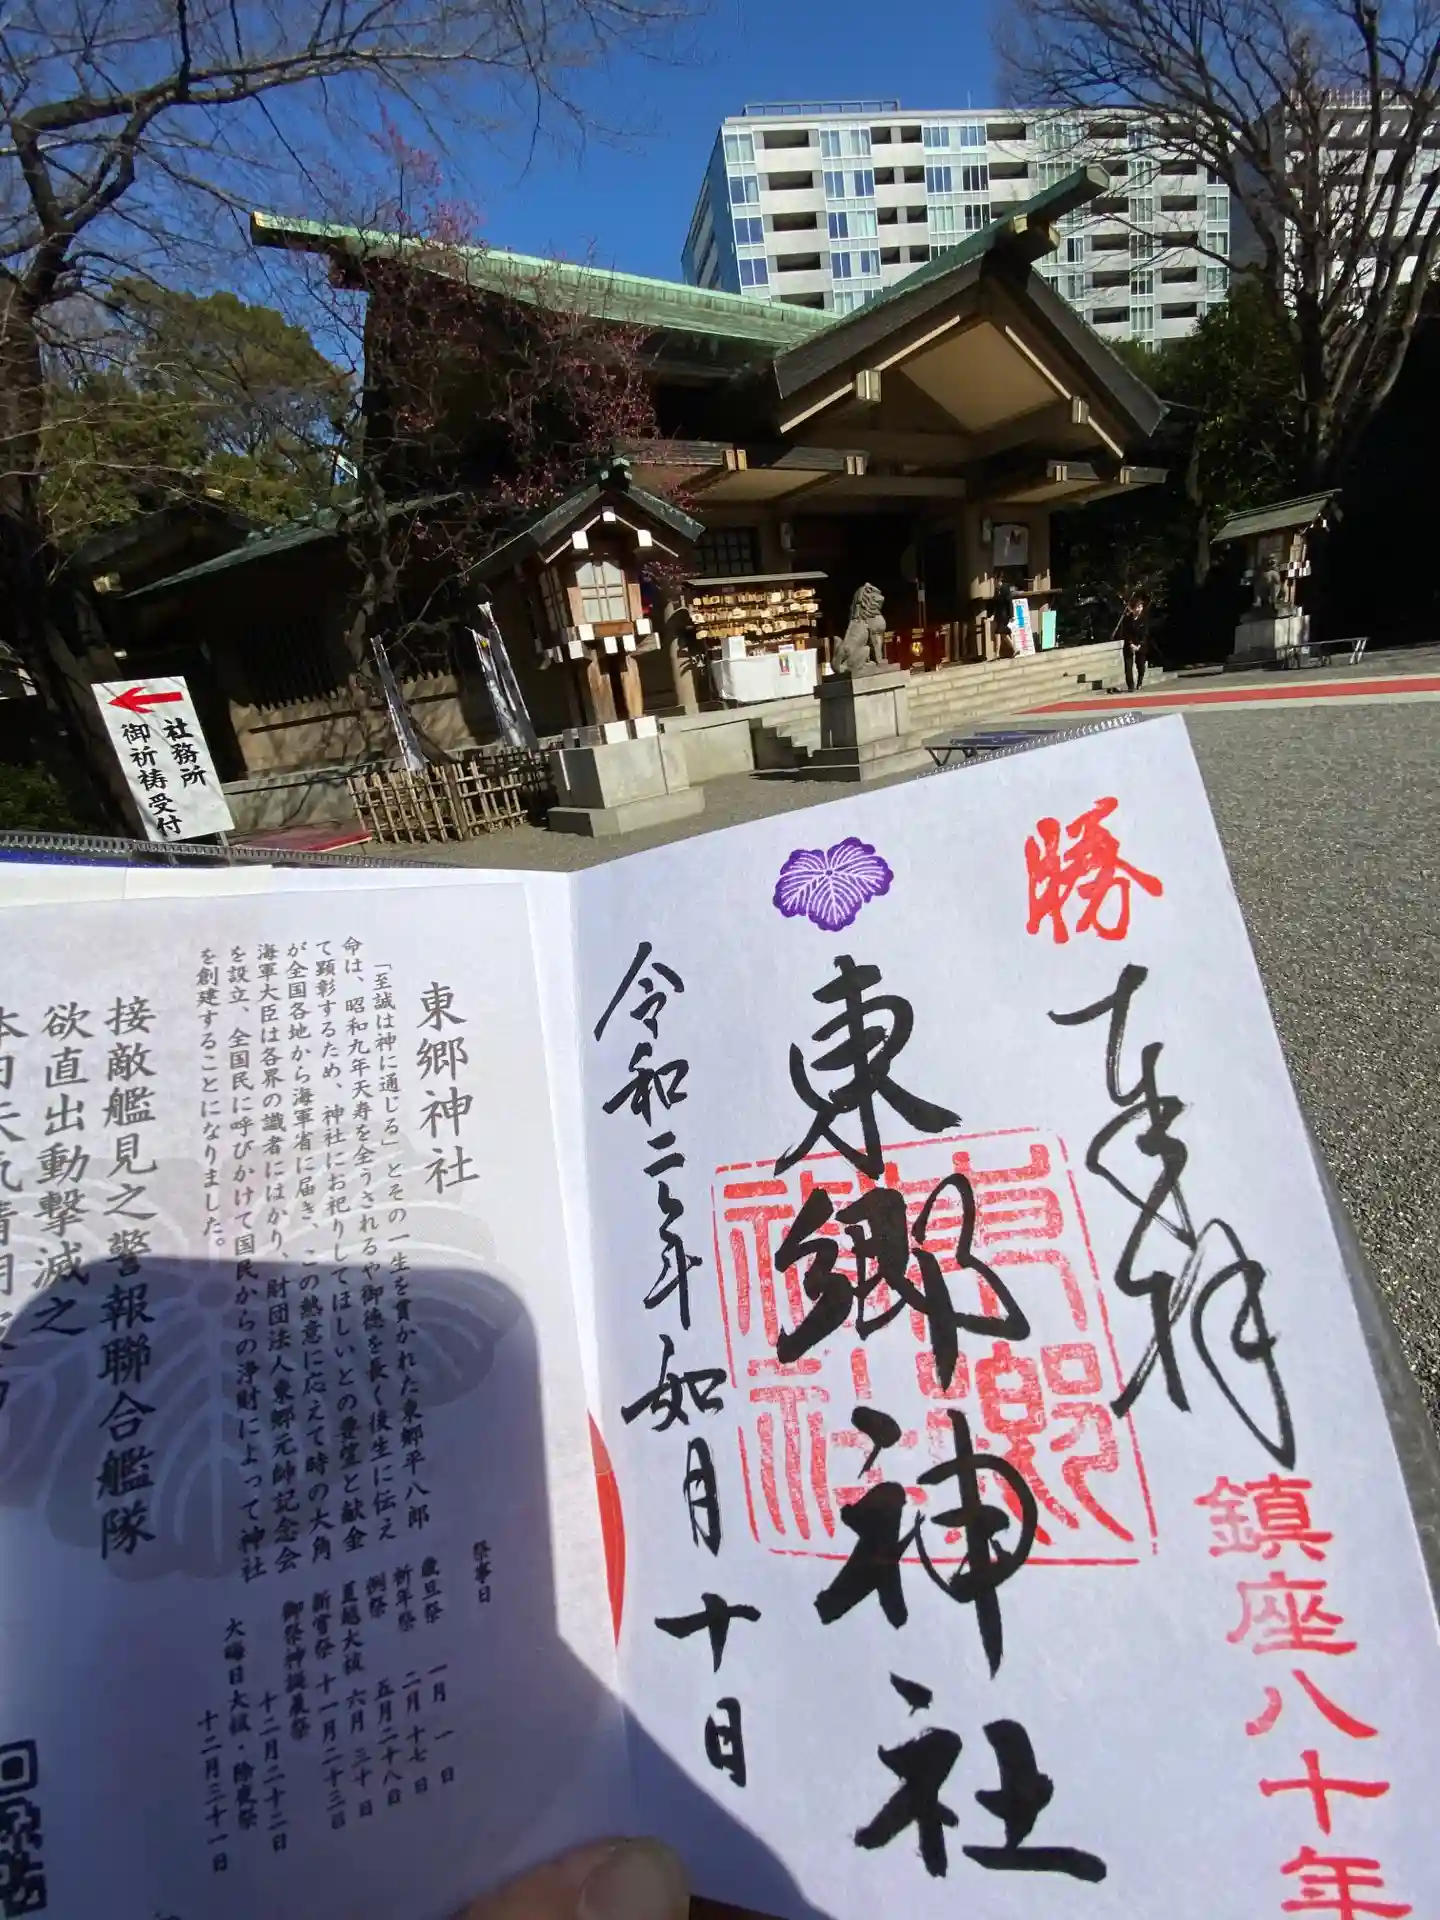 社務所
御祈祷受付
勝
奉拝
鎮座八十年
東郷神社
令和二年如月十日
東郷神社
「至誠は神に通じる」とその一生を貫かれた東郷平八郎
命は、昭和九年天寿を全うされるや御徳を長く後生に伝え
て顕彰するため、神社にお祀りしてほしいとの要望と献金
が全国各地から海軍省に届き、この熱意に応えて時の大角
海軍大臣は各界の識者にはかり、財団法人東郷元帥記念会
を設立、全国民に呼びかけて国民からの浄財によって神社
を創建することになりました。
祭事日
歳旦祭 一月一日
祈年祭 二月十七日
例祭 五月二十八日
夏越大祓 六月三十日
新嘗祭 十一月二十三日
御祭神誕辰祭 十二月二十二日
大晦日大祓・除夜祭 十二月三十一日
接敵艦見之警報聯合艦隊
欲直出動撃滅之
本日天気晴朗